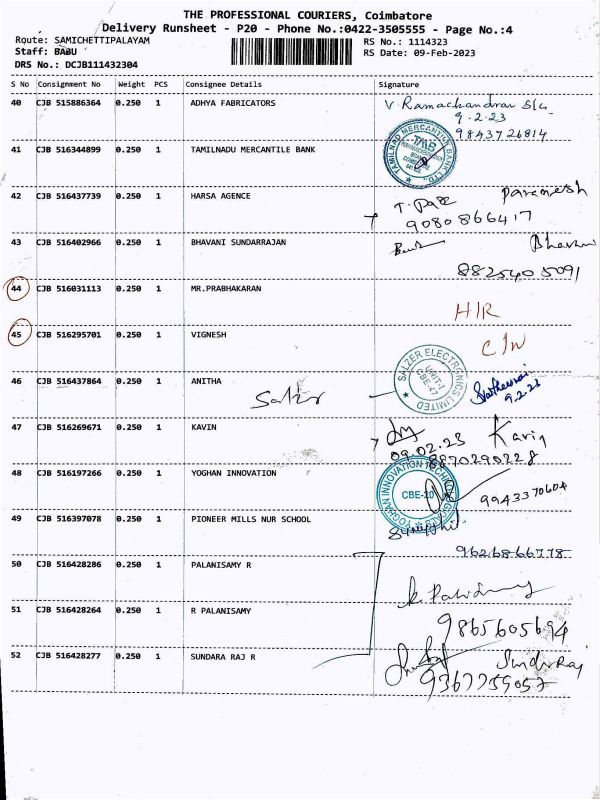 THE PROFESSIONAL COURIERS, Coimbatore
Delivery Runsheet - P20 - Phone No.:0422-3505555 - Page No.:4
Route: SAMICHETTIPALAYAM
RS No.: 1114323
Staff: BABU
RS Date: 09-Feb-2023
DRS No.: DCJB111432304
S No Consignment No Weight PCS Consignee Details Signature
40 CJB 515886364 0.250 1 ADHYA FABRICATORS V. Ramachandran
9.2.23
9843726814
41 CJB 516344899 0.250 1 TAMILNADU MERCANTILE BANK
TAMILNAD MERCANTILE BANK LTD.
TMB
42 CJB 516437739 0.250 1 HARSA AGENCE Paramesh
9080866417
43 CJB 516402966 0.250 1 BHAVANI SUNDARRAJAN
8825405091
44 CJB 516031113 0.250 1 MR.PRABHAKARAN
H/R
45 CJB 516295701 0.250 1 VIGNESH
C/N
46 CJB 516437864 0.250 1 ANITHA
Salzer
SALZER ELECTRONICS LIMITED
UNIT-I
CBE-47
9.2.23
47 CJB 516269671 0.250 1 KAVIN Kavin
09.02.23
8870290228
48 CJB 516197266 0.250 1 YOGHAN INNOVATION
YOGHAN INNOVATION TECHNOLOGIES
CBE-20
9943370604
49 CJB 516397078 0.250 1 PIONEER MILLS NUR SCHOOL
9626866778
50 CJB 516428286 0.250 1 PALANISAMY R
51 CJB 516428264 0.250 1 R PALANISAMY
9865605694
52 CJB 516428277 0.250 1 SUNDARA RAJ R
9367759057